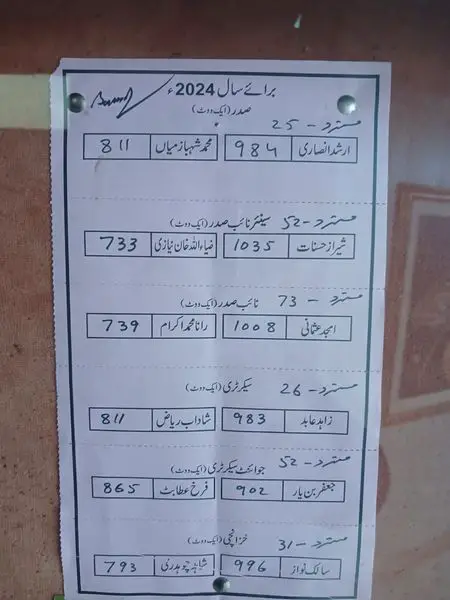 برائے سال 2024ء
صدر (ایک ووٹ)
مسترد - 25
ارشد انصاری 984 محمد شہباز میاں 811
مسترد - 52 سینئر نائب صدر (ایک ووٹ)
شیراز حسنات 1035 ضیاءاللہ خان نیازی 733
مسترد - 73 نائب صدر (ایک ووٹ)
امجد عثمانی 1008 رانا محمد اکرام 739
مسترد - 26 سیکرٹری (ایک ووٹ)
زاہد عابد 983 شاداب ریاض 811
مسترد - 52 جوائنٹ سیکرٹری (ایک ووٹ)
جعفر بن یار 902 فرخ عطا بٹ 865
مسترد - 31 خزانچی (ایک ووٹ)
سالک نواز 996 شاہد چوہدری 793